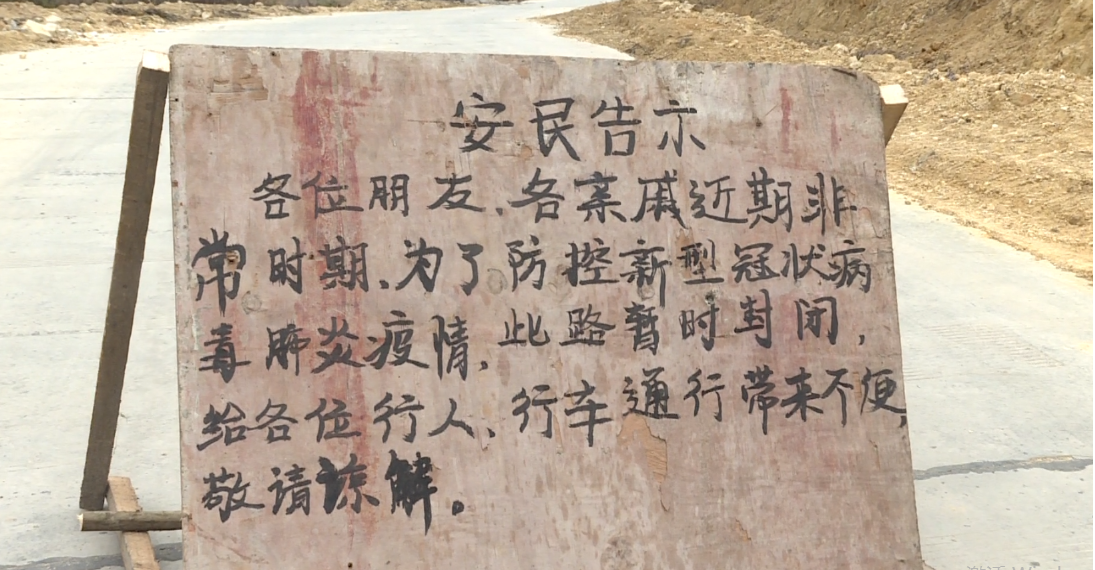 安民告示
各位朋友、各亲戚近期非
常时期、为了防控新型冠状病
毒肺炎疫情，此路暂时封闭，
给各位行人、行车通行带来不便，
敬请谅解。